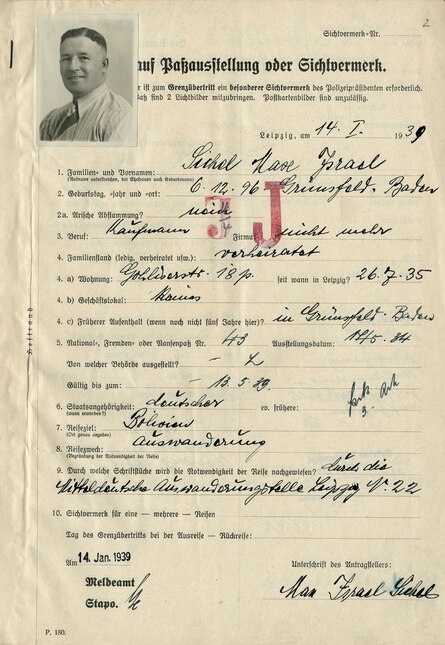 2
Sichtvermerk-Nr.
auf Paßausstellung oder Sichtvermerk.
r ist zum Grenzübertritt ein besonderer Sichtvermerk des Polizeipräsidenten erforderlich.
Paß sind 2 Lichtbilder mitzubringen. Postkartenbilder sind unzulässig.
Leipzig, am 14. I. 1939
1. Familien- und Vornamen: Sichel Max Israel
(Rufname unterstreichen, bei Ehefrauen auch Geburtsname)
2. Geburtstag, -jahr und -ort: 6.12.96 Grünsfeld-Baden
2a. Arische Abstammung? nein
J J
3. Beruf: Kaufmann Firma: nicht mehr
4. Familienstand (ledig, verheiratet usw.): verheiratet
4. a) Wohnung: Gohliserstr. 18 p. seit wann in Leipzig? 26.7.35
4. b) Geschäftslokal: keines
4. c) Früherer Aufenthalt (wenn noch nicht fünf Jahre hier)? in Grünsfeld-Baden
5. National-, Fremden- oder Nansenpaß Nr. 43 Ausstellungsdatum: 14.5.34
Von welcher Behörde ausgestellt?
Gültig bis zum: 13.5.39
6. Staatsangehörigkeit: deutscher ev. frühere:
(wenn erworben?)
7. Reiseziel: Bolivien
(Ort genau angeben)
8. Reisezweck: Auswanderung
(Begründung der Notwendigkeit der Reise)
9. Durch welche Schriftstücke wird die Notwendigkeit der Reise nachgewiesen? durch die
Mitteldeutsche Auswanderungstelle Leipzig N. 22
10. Sichtvermerk für eine — mehrere — Reisen
Tag des Grenzübertritts bei der Ausreise — Rückreise:
Am 14. Jan. 1939
Unterschrift des Antragstellers:
Meldeamt
Stapo.
Max Israel Sichel
P. 180.
Heftrand